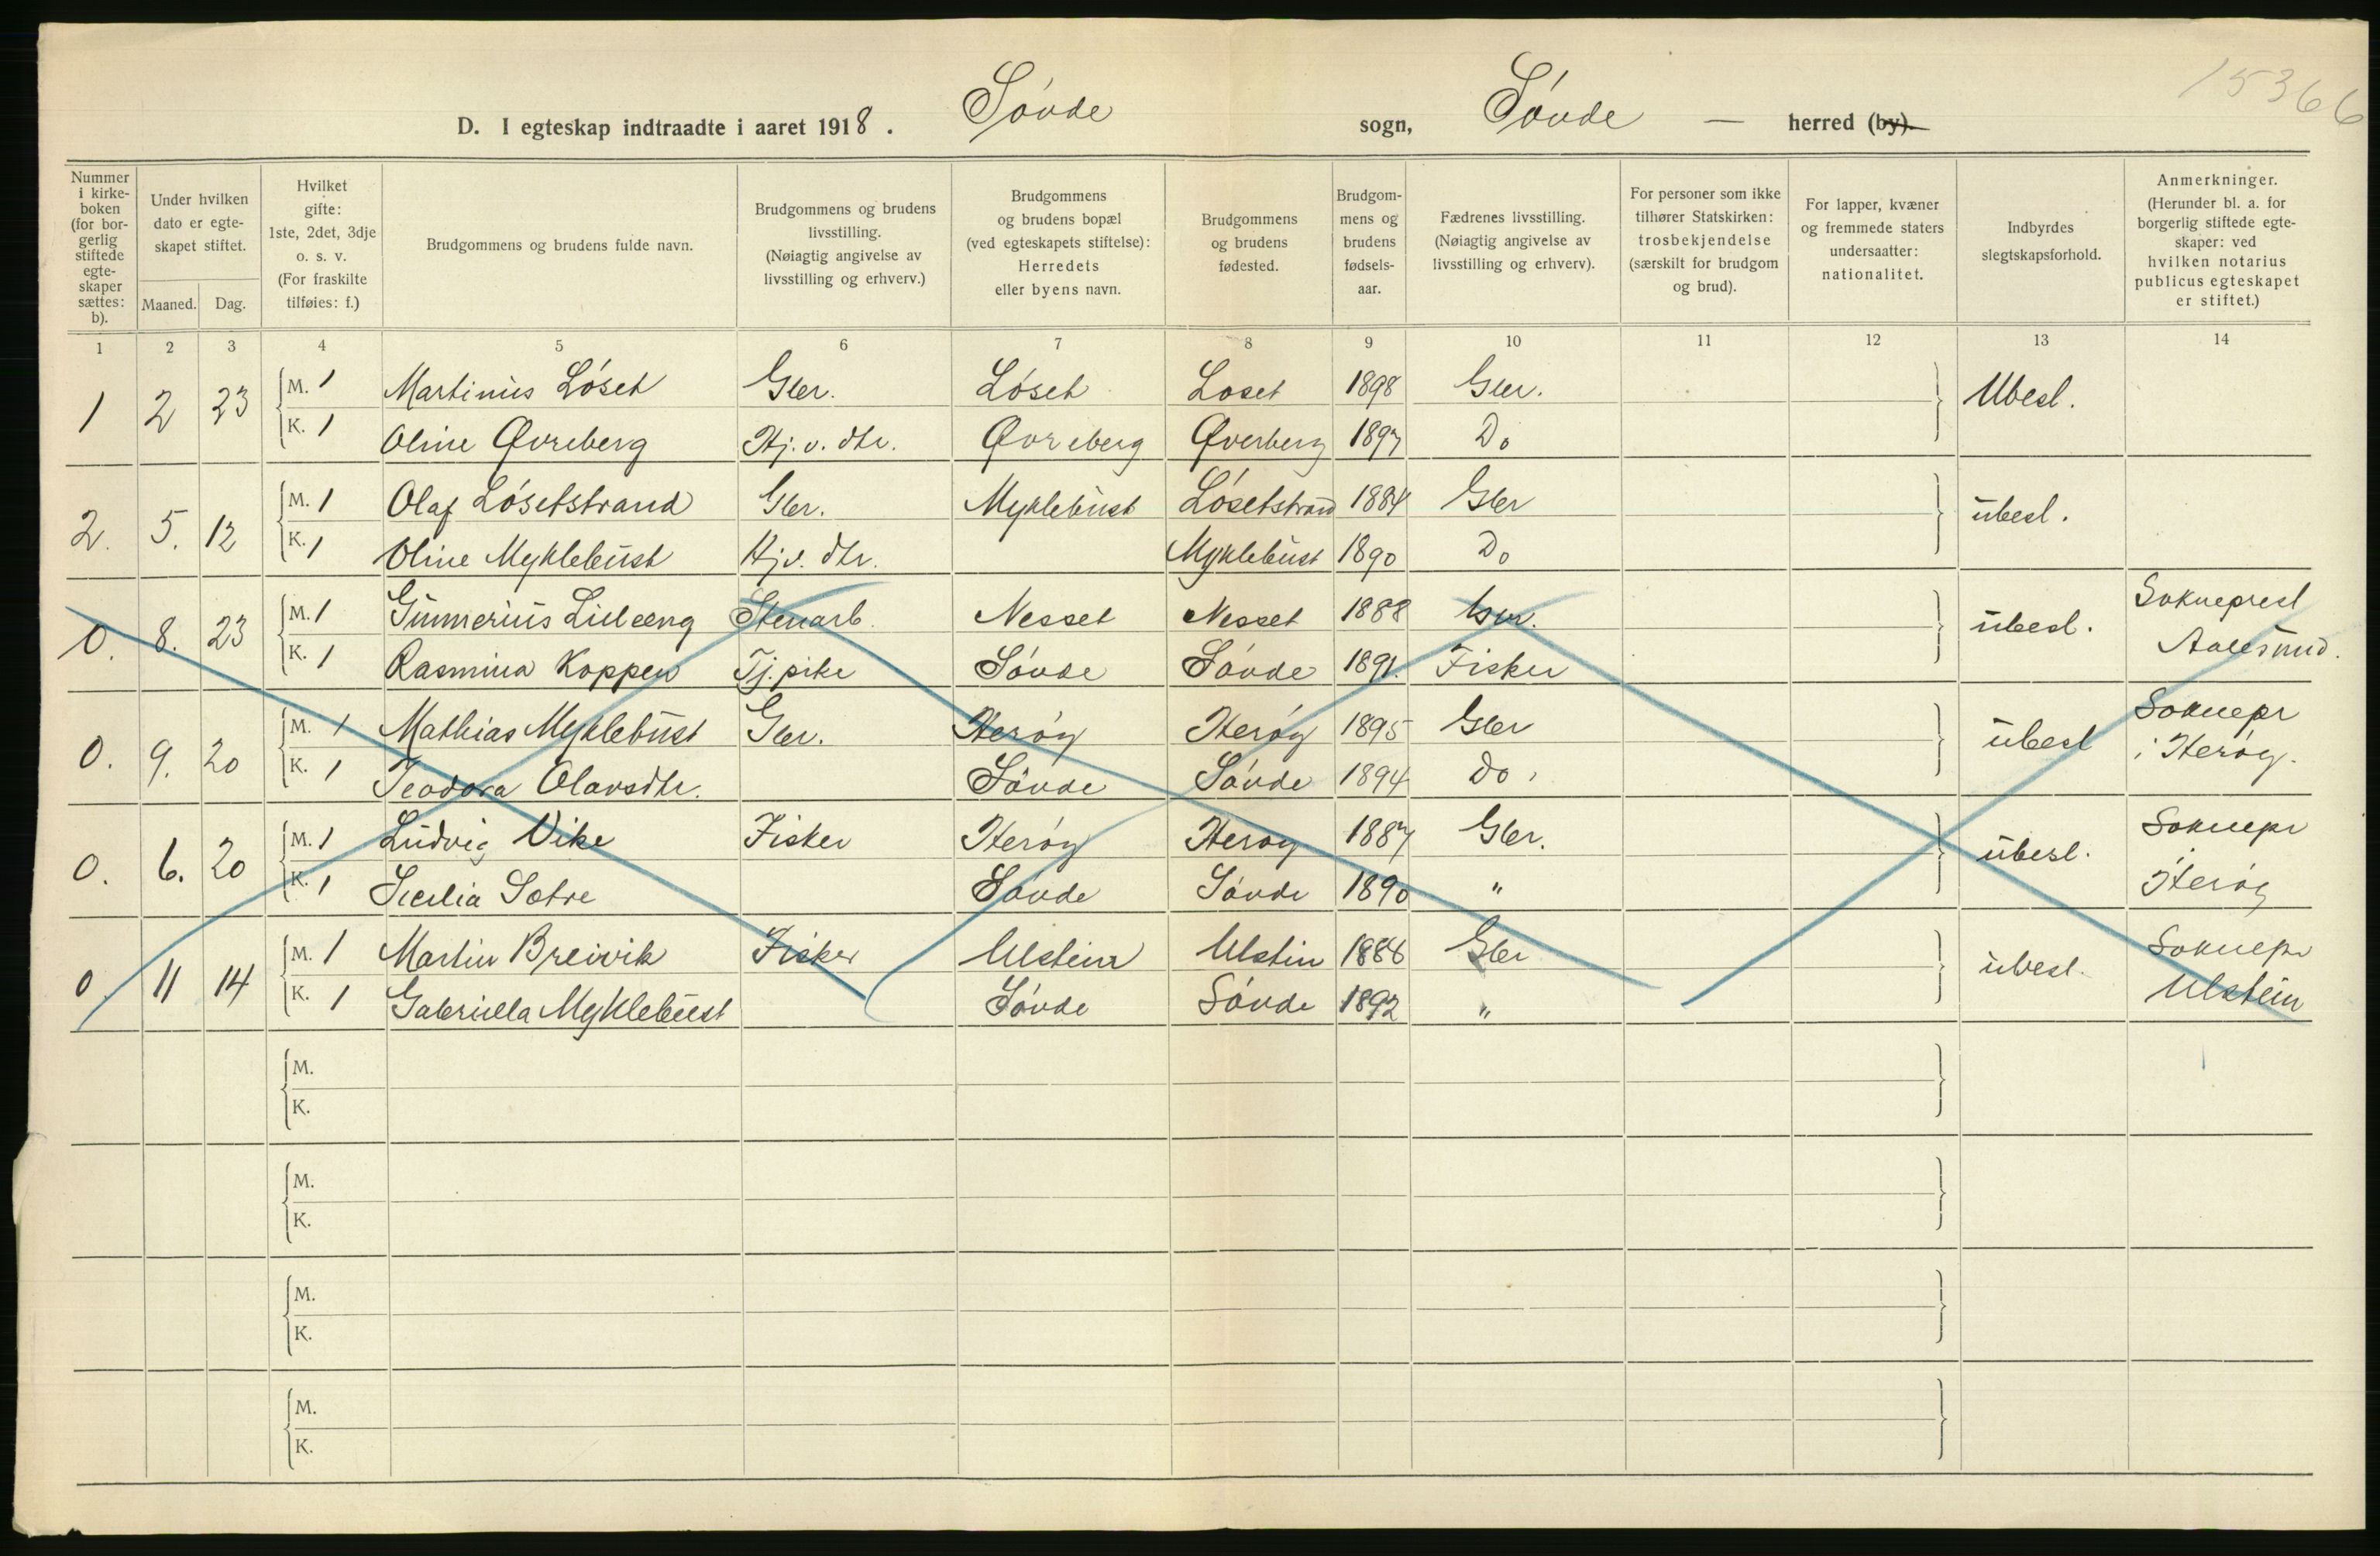 15366
D. I egteskap indtraadte i aaret 1918. Søvde sogn, Søvde — herred (by).
Nummer i kirkeboken (for borgerlig stiftede egteskaper sættes: b).
Under hvilken dato er egteskapet stiftet.
Maaned. Dag.
Hvilket gifte: 1ste, 2det, 3dje o. s. v. (For fraskilte tilføies: f.)
Brudgommens og brudens fulde navn.
Brudgommens og brudens livsstilling. (Nøiagtig angivelse av livsstilling og erhverv.)
Brudgommens og brudens bopæl (ved egteskapets stiftelse): Herredets eller byens navn.
Brudgommens og brudens fødested.
Brudgommens og brudens fødselsaar.
Fædrenes livsstilling. (Nøiagtig angivelse av livsstilling og erhverv).
For personer som ikke tilhører Statskirken: trosbekjendelse (særskilt for brudgom og brud).
For lapper, kvæner og fremmede staters undersaatter: nationalitet.
Indbyrdes slegtskapsforhold.
Anmerkninger. (Herunder bl. a. for borgerlig stiftede egteskaper: ved hvilken notarius publicus egteskapet er stiftet.)
1 2 3 4 5 6 7 8 9 10 11 12 13 14
1 2 23 M. 1 Martinus Løset Gbr. Løset Løset 1898 Gbr. Ubesl.
K. 1 Oline Øvreberg Hj.v. dtr. Øvreberg Øverberg 1897 Do
2. 5. 12 M. 1 Olaf Løsetstrand Gbr. Myklebust Løsetstrand 1884 Gbr ubesl.
K. 1 Oline Myklebust Hj.v. dtr. Myklebust 1890 Do
0. 8. 23 M. 1 Gunnerius Lieleeng Stenarb. Nesset Nesset 1888 Gbr. ubesl. Sokneprest
K. 1 Rasmina Koppen Tj.pike Søvde Søvde 1891. Fisker Aalesund.
0. 9. 20 M. 1 Mathias Myklebust Gbr. Herøy Herøy 1895 Gbr ubesl Soknepr
K. 1 Teodora Olavsdtr. Søvde Søvde 1894 Do. i Herøy.
0. 6. 20 M. 1 Ludvig Vike Fisker Herøy Herøy 1887 Gbr. ubesl. Soknepr
K. 1 Secilia Sætre Søvde Søvde 1890 " i Herøy
0 11 14 M. 1 Martin Breivik Fisker Ulstein Ulstin 1886 Gbr ubesl. Soknepr
K. 1 Gabriella Myklebust Søvde Søvde 1892 " Ulstein
M.
K.
M.
K.
M.
K.
M.
K.